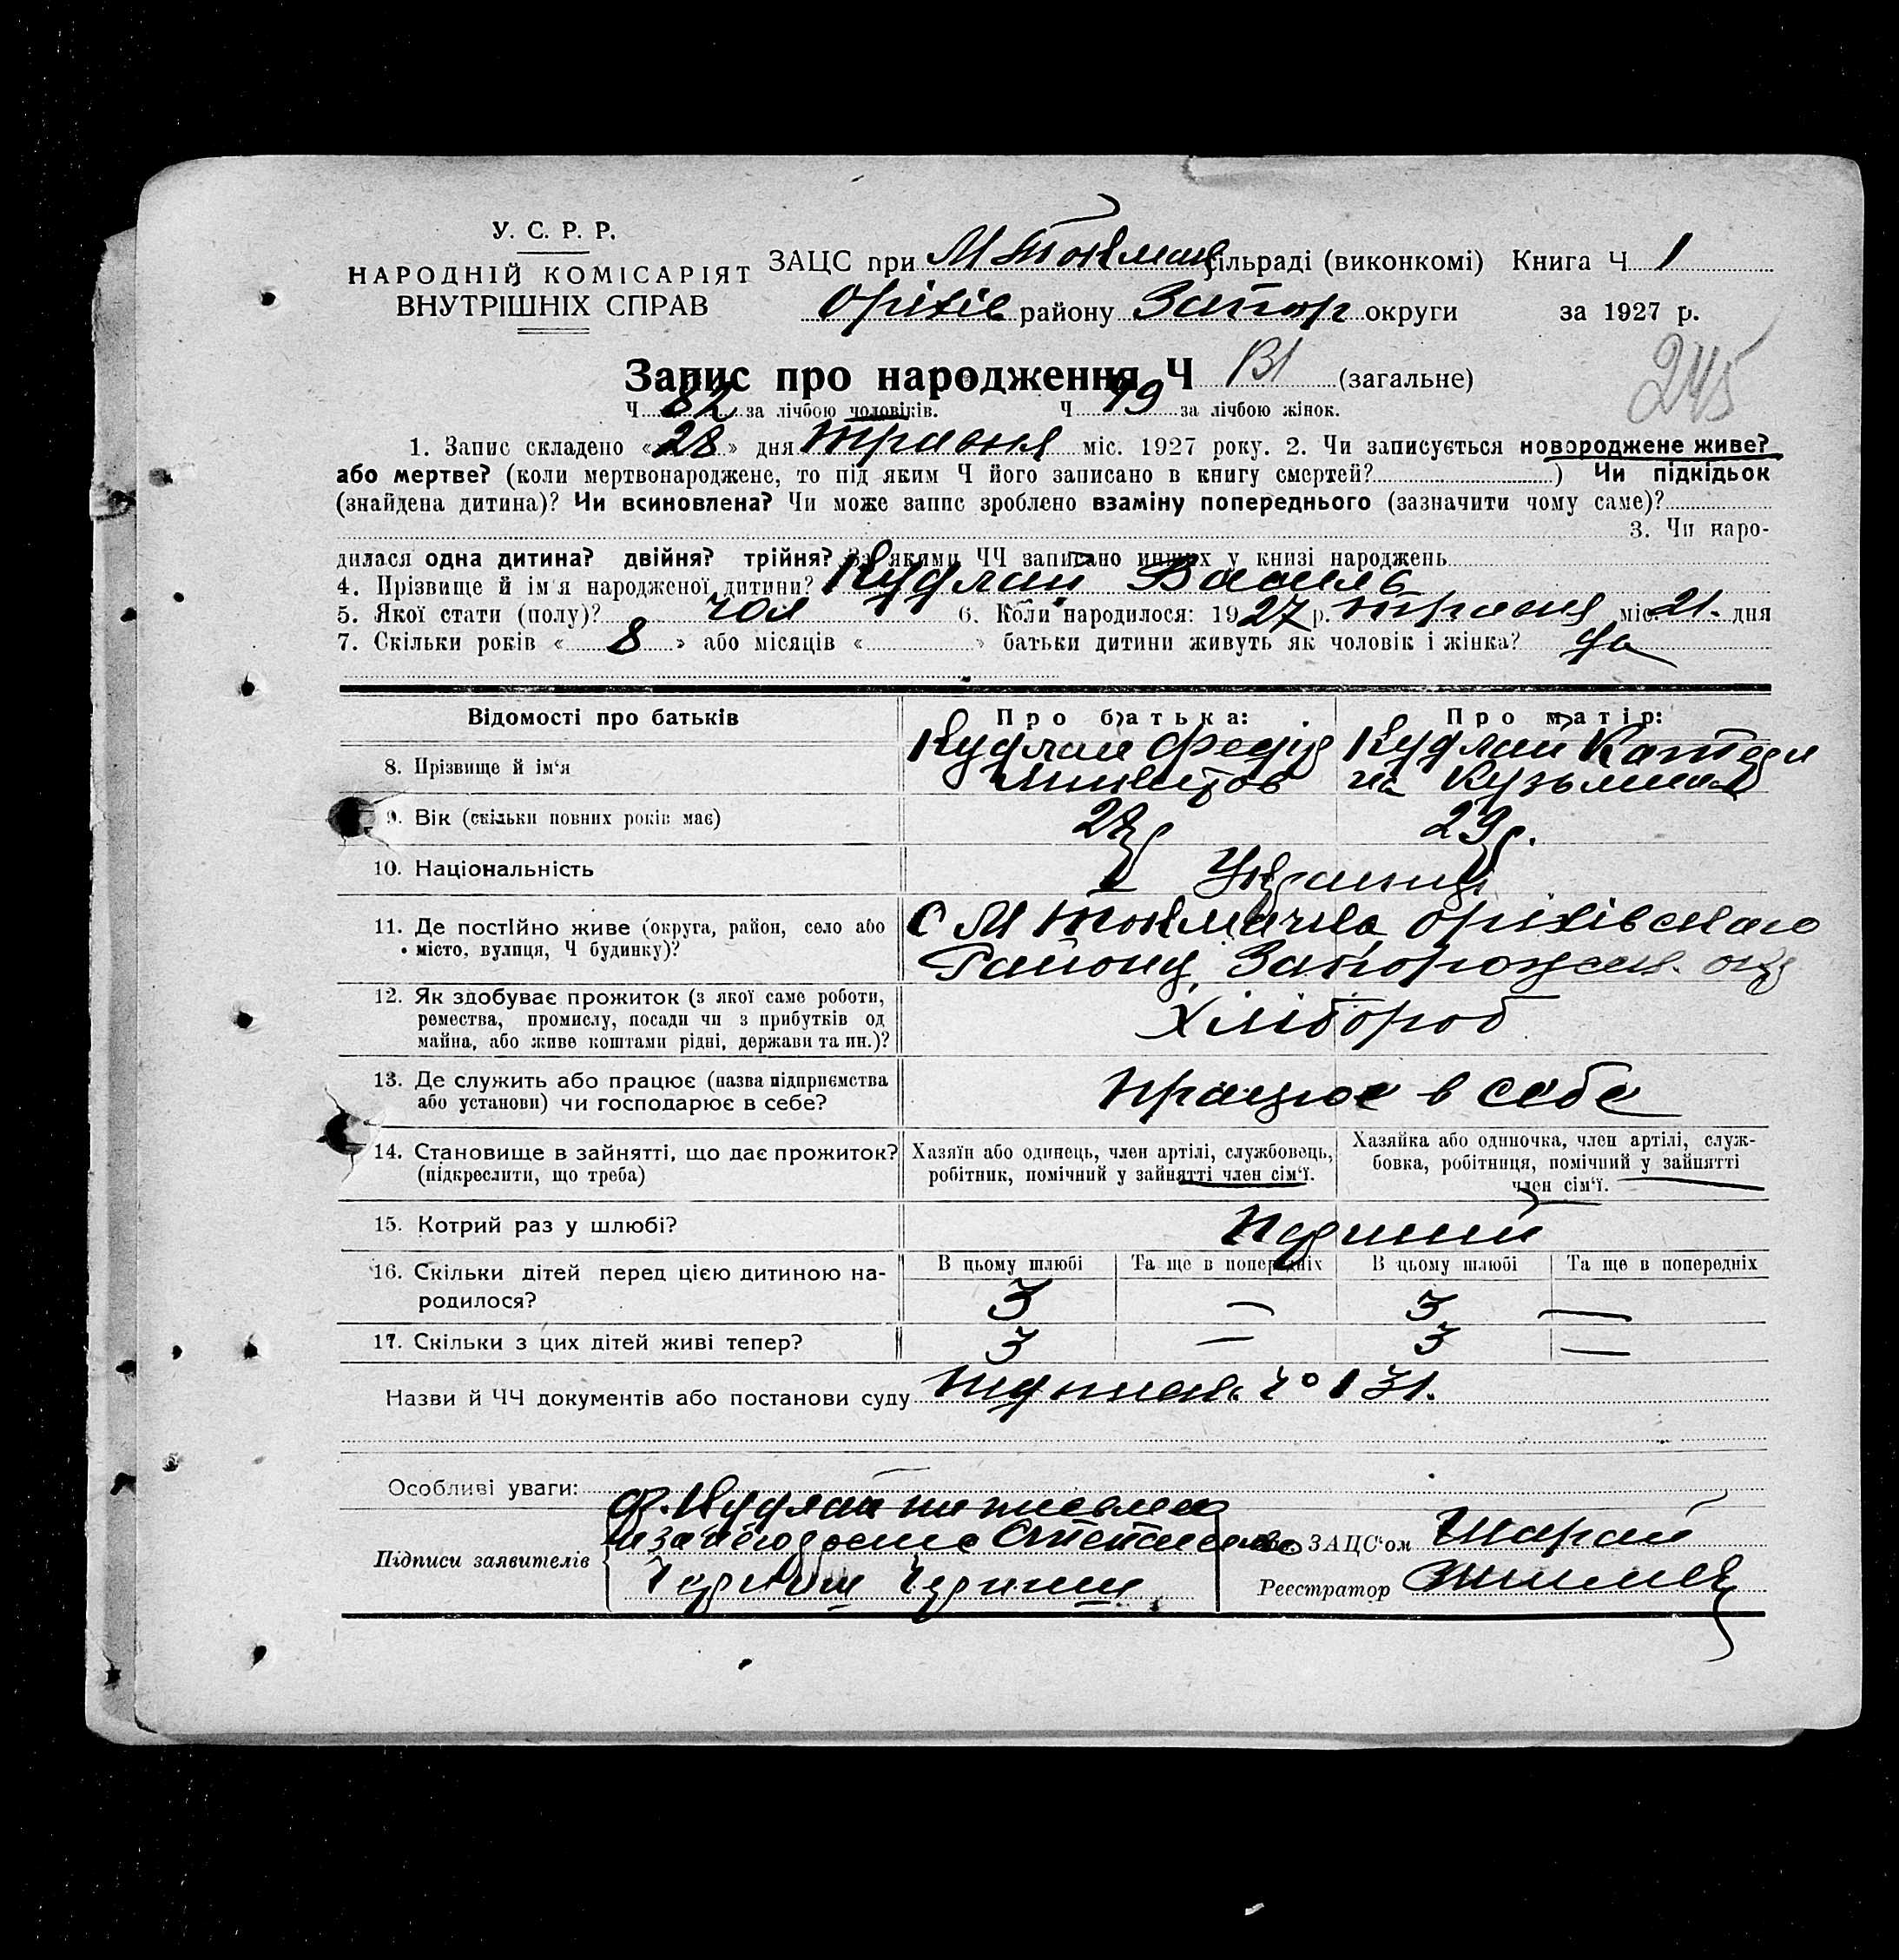 У. С. Р. Р.
НАРОДНІЙ КОМІСАРІЯТ
ВНУТРІШНІХ СПРАВ
ЗАЦС при М Токмац сільраді (виконкомі) Книга Ч 1
Оріхів району Запор округи за 1927 р.
Запис про народження Ч 131 (загальне)
245
Ч 82 за лічбою чоловіків. Ч 49 за лічбою жінок.
1. Запис складено «28» дня травня міс. 1927 року. 2. Чи записується новороджене живе?
або мертве? (коли мертвонароджене, то під яким Ч його записано в книгу смертей?) Чи підкідьок
(знайдена дитина)? Чи всиновлена? Чи може запис зроблено взаміну попереднього (зазначити чому саме)?
3. Чи наро-
дилася одна дитина? двійня? трійня? За якими ЧЧ записано инших у книзі народжень
4. Прізвище й ім'я народженої дитини? Кудлай Василь
5. Якої стати (полу)? чол 6. Коли народилося: 1927 р. травня міс. 21. дня
7. Скільки років «8» або місяців « » батьки дитини живуть як чоловік і жінка? да
Відомості про батьків Про батька: Про матір:
8. Прізвище й ім'я Кудлай Федір Кудлай Катери
на Кузьмина
9. Вік (скільки повних років має) 28р 29р.
10. Національність Українці
11. Де постійно живе (округа, район, село або місто, вулиця, Ч будинку)? С М Токмачка, Оріхівского
Району, Запорожськ. окр
12. Як здобуває прожиток (з якої саме роботи, ремества, промислу, посади чи з прибутків од майна, або живе коштами рідні, держави та ин.)? Хлібороб
13. Де служить або працює (назва підприємства або установи) чи господарює в себе? працює в себе
14. Становище в зайнятті, що дає прожиток? (підкреслити, що треба)
Хазяїн або одинець, член артілі, службовець, робітник, помічний у зайнятті член сім'ї.
Хазяйка або одиночка, член артілі, служ-
бовка, робітниця, помічний у зайнятті
член сім'ї.
15. Котрий раз у шлюбі? Перший
В цьому шлюбі Та ще в попередніх В цьому шлюбі Та ще в попередніх
16. Скільки дітей перед цією дитиною на-
родилося? 3 — 3 —
17. Скільки з цих дітей живі тепер? 3 — 3 —
Назви й ЧЧ документів або постанови суду 131.
Особливі уваги:
Ф. Кудлай
Підписи заявителів
ЗАЦС'ом Шарай
Реєстратор